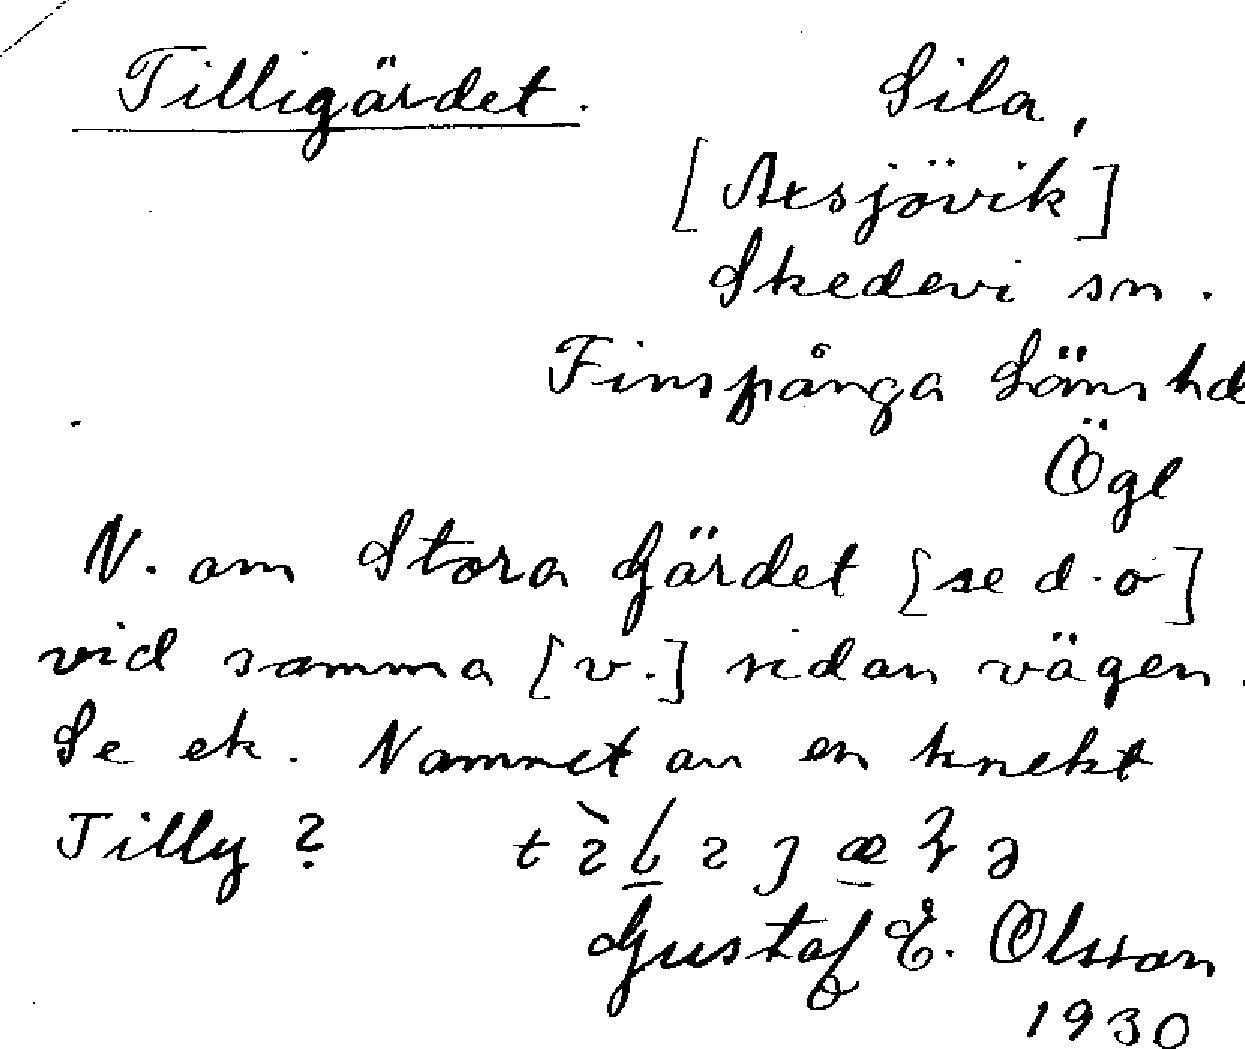 Tilligärdet.
Sila,
[Axsjövik]
Skedevi sn.
Finspånga Läns hd
Ögl
N. om Stora Gärdet [se d.o]
vid samma [v.] sidan vägen.
Se ek. Namnet av en knekt
Tilly?
Gustaf E. Olsson
1930